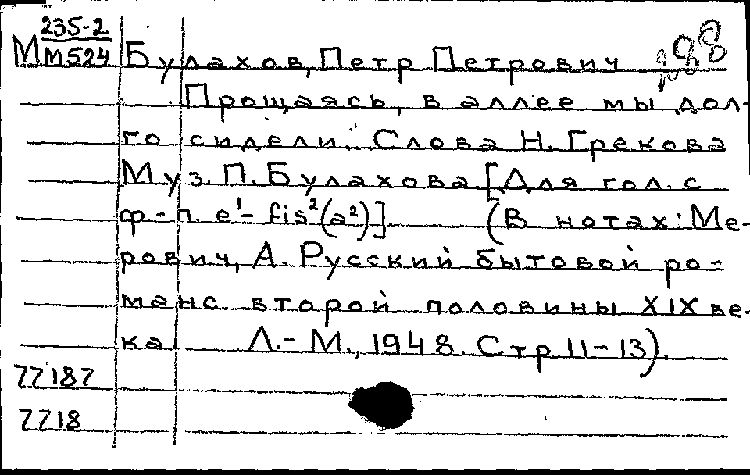 235-2
М М524 Булахов, Петр Петрович
Прощаясь, в аллее мы дол-
го сидели. Слова Н. Грекова
Муз. П. Булахова [Для гол. с
ф-п. e¹- fis²(a²)] (В нотах: Ме-
рович, А. Русский бытовой ро-
манс второй половины XIX ве-
ка Л.- М., 1948. Стр 11-13).
77187
7718